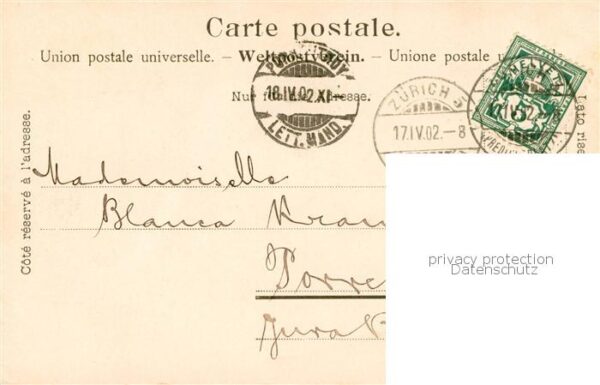 Carte postale.
Union postale universelle. – Weltpostverein. – Unione postale
Nur für die Adresse.
Côté réservé à l'adresse.
Lato rise
PORRENTRUY
18.IV.02.XI
LETT. MAND.
ZÜRICH
17.IV.02.–8
HELVETIA
5
Mademoiselle
Blanca
Porre
Jura
privacy protection
Datenschutz